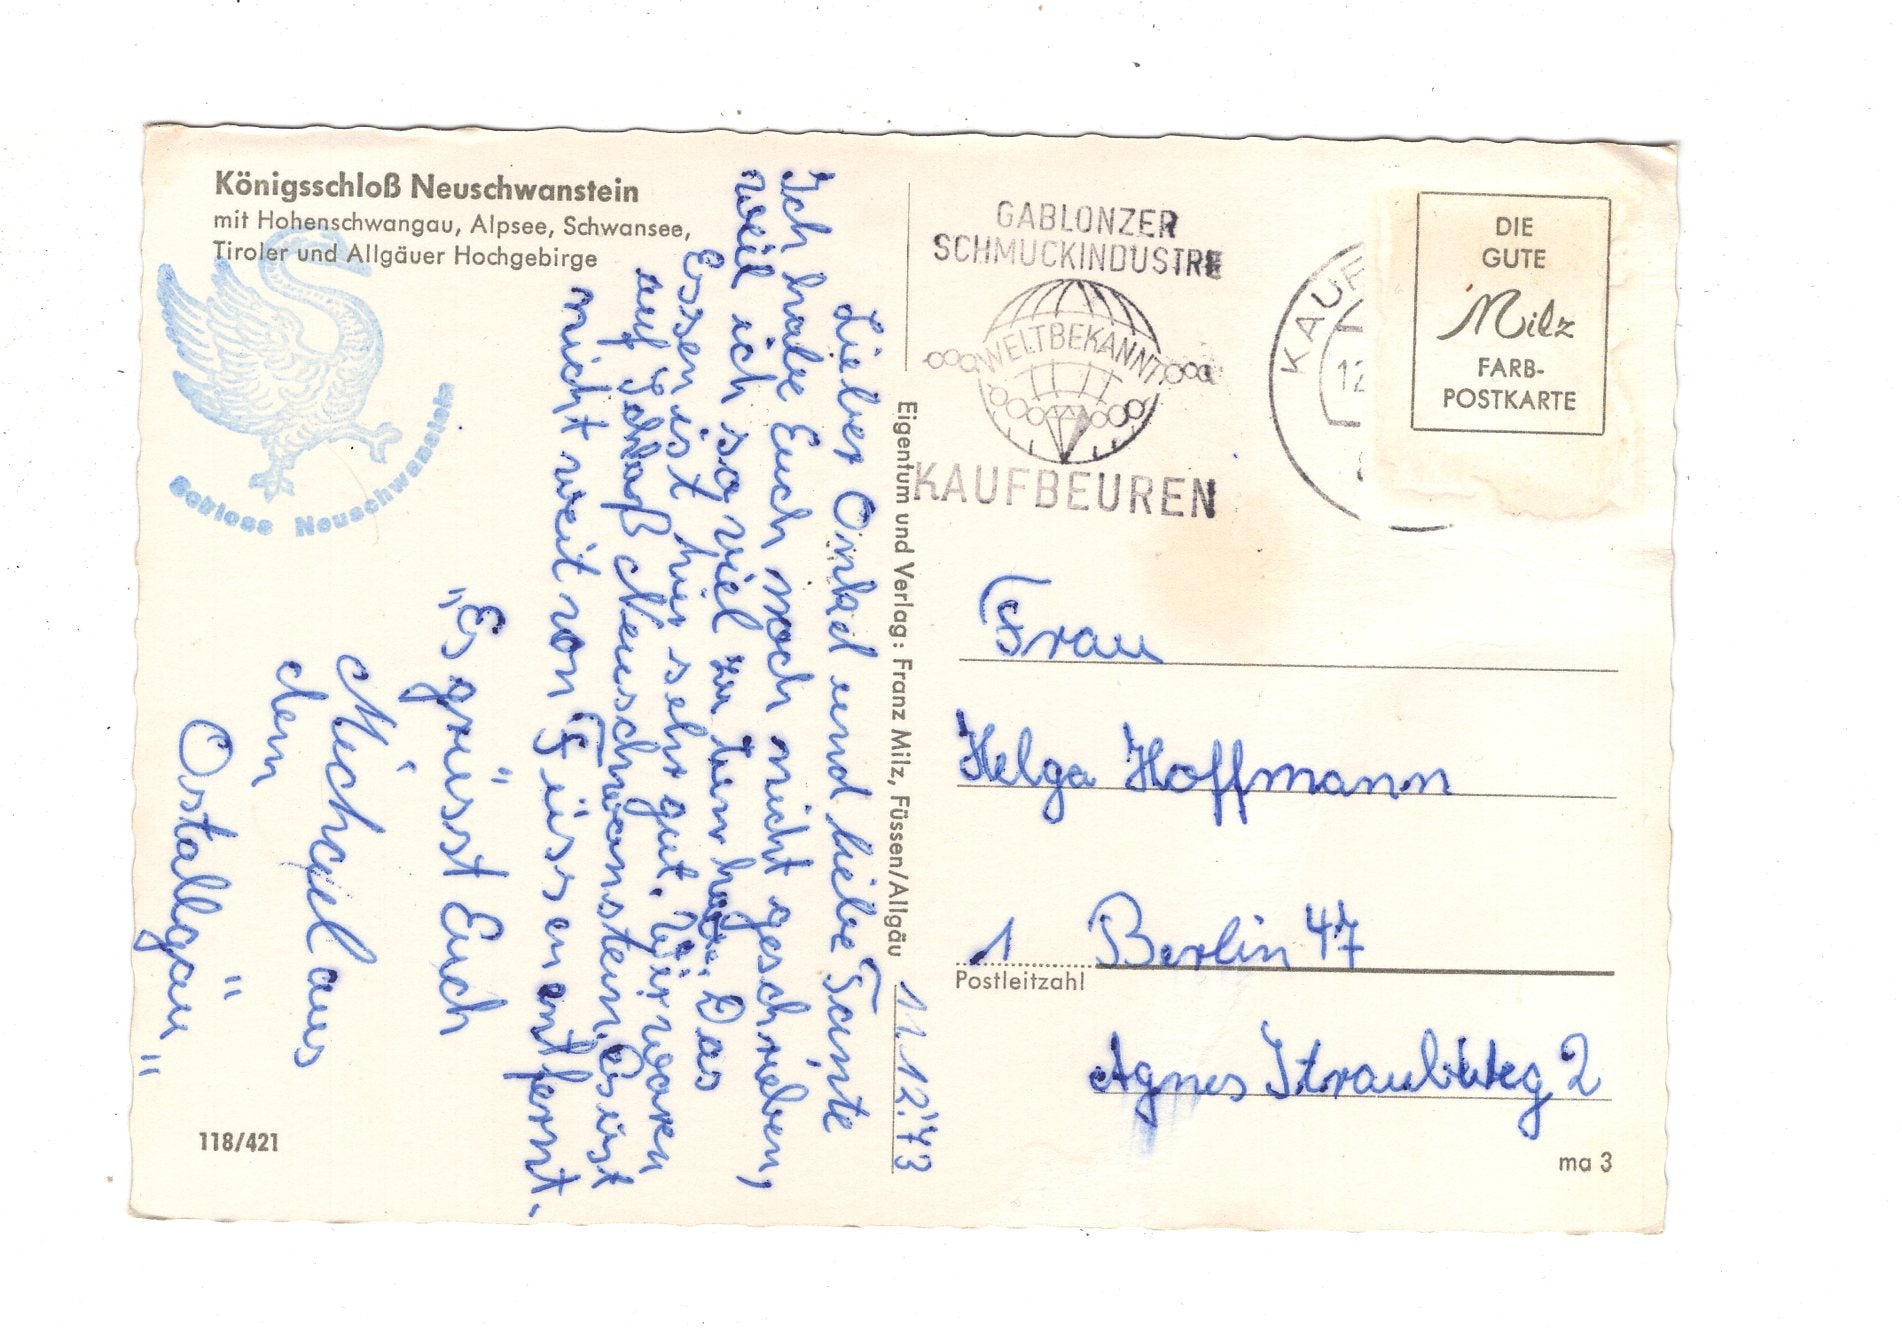 Königsschloß Neuschwanstein
mit Hohenschwangau, Alpsee, Schwansee,
Tiroler und Allgäuer Hochgebirge
Schloss Neuschwanstein
11.12.73
Lieber Onkel und liebe Tante
Ich habe Euch noch nicht geschrieben,
weil ich so viel zu tun hatte. Das
Essen ist hier sehr gut. Wir waren
auf Schloß Neuschwanstein. Es ist
nicht weit von Füssen entfernt.
"Es grüsst Euch
Michael aus
dem
Ostallgäu"
118/421
Eigentum und Verlag: Franz Milz, Füssen/Allgäu
GABLONZER
SCHMUCKINDUSTRIE
WELTBEKANNT
KAUFBEUREN
KAUF
12
DIE
GUTE
Milz
FARB-
POSTKARTE
Frau
Helga Hoffmann
1 Berlin 47
Postleitzahl
Agnes Straubweg 2
ma 3